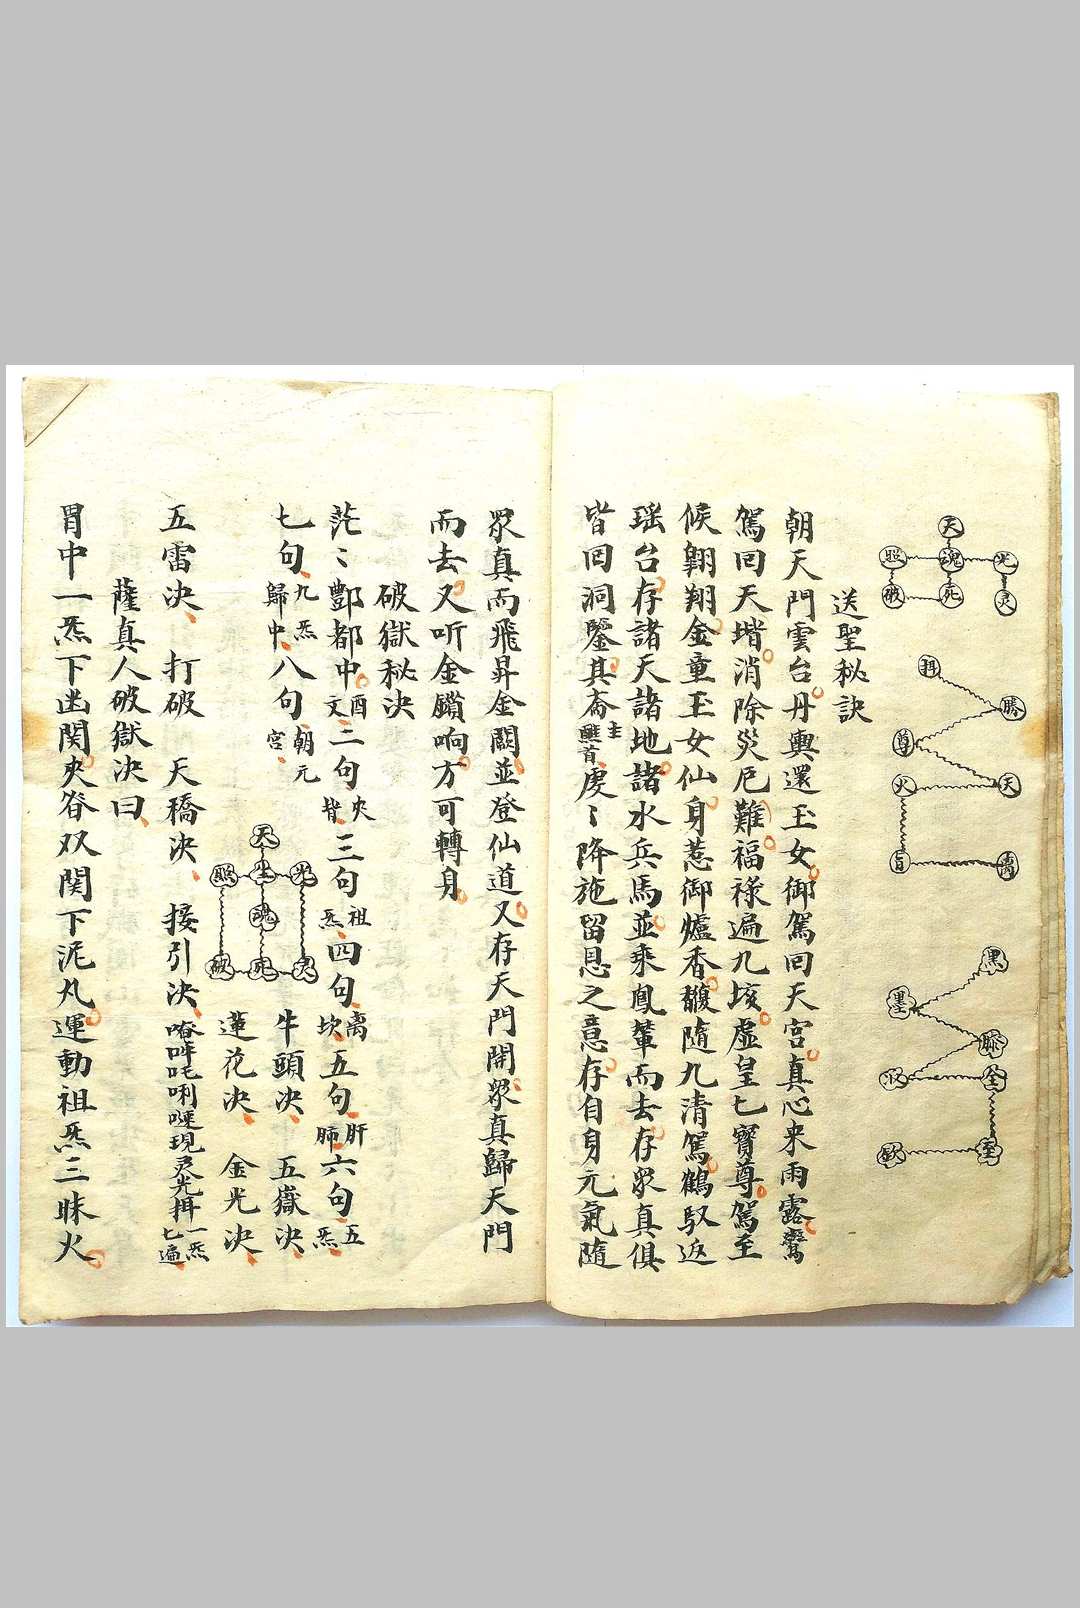 天
照魂光
破死灵
勝
尊
天
火
黑
墨
全
送聖秘訣
朝天門雲台丹輿還玉女御駕回天宫真心来雨露鸞
駕回天堦消除災厄難福祿遍九垓虛皇七寶尊駕至
候翱翔金童玉女仙身惹御爐香馥隨九清駕鶴馭返
瑶台存諸天諸地諸水兵馬並乘鳳輦而去存眾真俱
皆回洞鑒其斋主醮首虔〻降施留恩之意存自身元氣隨
眾真而飛昇金闕並登仙道又存天門開眾真歸天門
而去又听金鎖响方可轉身
破獄秘决
茫〻酆都中酉文二句央皆三句祖炁四句离坎五句肝肺六句五炁
七句九炁歸中八句朝元宫
牛頭决 五嶽决
蓮花决 金光决
天
照生光
魂
破死灵
五雷决 打破 天橋决 接引决 唵吽吒唎 現灵光 一炁七遍
薩真人破獄决曰
胃中一炁下幽関夾脊双関下泥丸運動祖炁三昧火